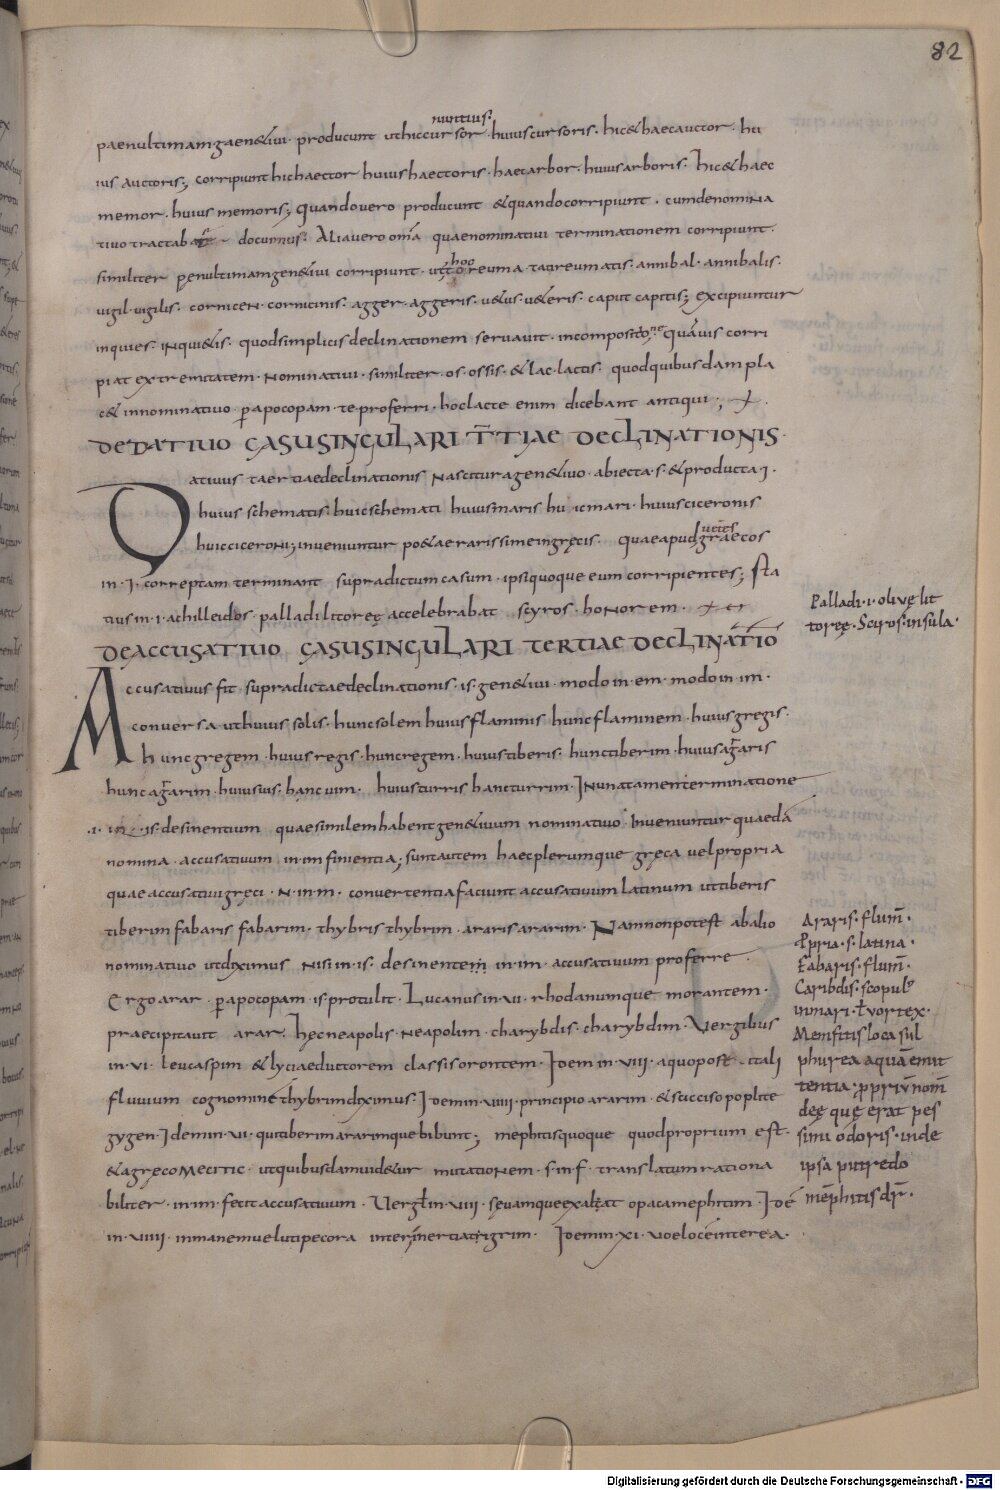 82
nuntius·
paenultimam gaen&iui· producunt ut hic cursor· huius cursoris· hic & haec auctor· hu
ius auctoris; corripiunt hic haector huius haectoris· haec arbor· huius arboris· hic & haec
memor· huius memoris; Quando uero producunt & quando corripiunt· cum de nomina
tiuo docuimus· Alia uero om̄a quae nominatiui terminationem corripiunt·
similiter penultimam gen&iui corripiunt· ut hoc reuma reumatis· annibal· annibalis·
uigil· uigilis· cornicen· cornicinis· agger· aggeris· u&us· u&eris· caput capitis; excipiuntur
inquies· inqui&is· quod simplicis declinationem seruauit· in composito ne quāuis corri
piat extremitatem· nominatiui· similiter· os· ossis· & lac· lactis· quod quibusdam pla
c& in nominatiuo p̱ apocopam· te proferri· hoc lacte enim dicebant antiqui;
DE DATIUO CASU SINGULARI T̄TIAE DECLINATIONIS·
Datiuus taertiae declinationis nascitur a gen&iuo· abiecta· s· & producta· i·
huius schematis· huic schemati huius maris hu ic mari· huius ciceronis
huic ciceroni; inueniuntur po&ae rarissime in gręcis· quae apud graecos
in· i· correptam terminant supradictum casum· ipsi quoque eum corripientes; Sta
tius in· i· achilleidos· palladi litoreę accelebrabat scyros· honorem·
Palladi· i· oliuę lit
toreę· Sciros· insula·
DE ACCUSATIUO CASU SINGULARI TERTIAE DECLINATIO
Accusatiuus fit supradictae declinationis· is· gen&iui· modo in· em· modo in im·
conuersa· ut huius solis· hunc solem huius flaminis hunc flaminem· huius gregis·
hunc gregem· huius regis· hunc regem· huius tiberis· hunc tiberim· huius araris
hunc ararim· huius uis· hanc uim· huius turris hanc turrim· In una tamen terminatione
·i· in· is· desinentium quae similem habent gen&iuum nominatiuo· inueniuntur quaedā
nomina· accusatiuum in im finientia; sunt autem haec plerumque gręca uel propria
quae accusatiui gręci· n· in· m· conuertentia faciunt accusatiuum latinum ut tiberis
tiberim fabaris fabarim· thybris thybrim· araris ararim· Nam non potest ab alio
nominatiuo ut diximus nisi in· is· desinentem in· im· accusatiuum proferre·
Ergo arar· p̱ apocopam· is protulit· Lucanus in· VI· rhodanumque morantem·
praecipitauit arar· hęc neapolis· neapolim· charybdis· charybdim· Uergilius
in· VI· leucaspim & lyciae ductorem classis orontem· Idem in· VIII· a quo post itali
fluuium cognomine thybrim diximus· Idem in· VIIII· principio ararim· & succiso poplite
gygen· Idem in· VI· qui tiberim ararimque bibunt; mephitis quoque quod proprium est·
Araris· flum̄·
Ppria· s· latina·
Fabaris· flum̄·
Caribdis· scopul'
in mari· ł uortex·
Memfitis loca sul
phurea aquā emit
tentia· p̱ priū nom̄
deę quę erat pes
simi odoris· inde
ipsa putredo
mēphitis dr̄·
& a gręco ut quibusdam uid&ur mutationem· s· in f· translatum rationa
biliter· in· im· fecit accusatiuum· Uergł in· VIII· sęuamque exalat opaca mephitim· Idē
in· VIIII· in manem ueluti pecora inter inertia tigrim· Idem in· XI· uoe loce interea·
Digitalisierung gefördert durch die Deutsche Forschungsgemeinschaft - DFG